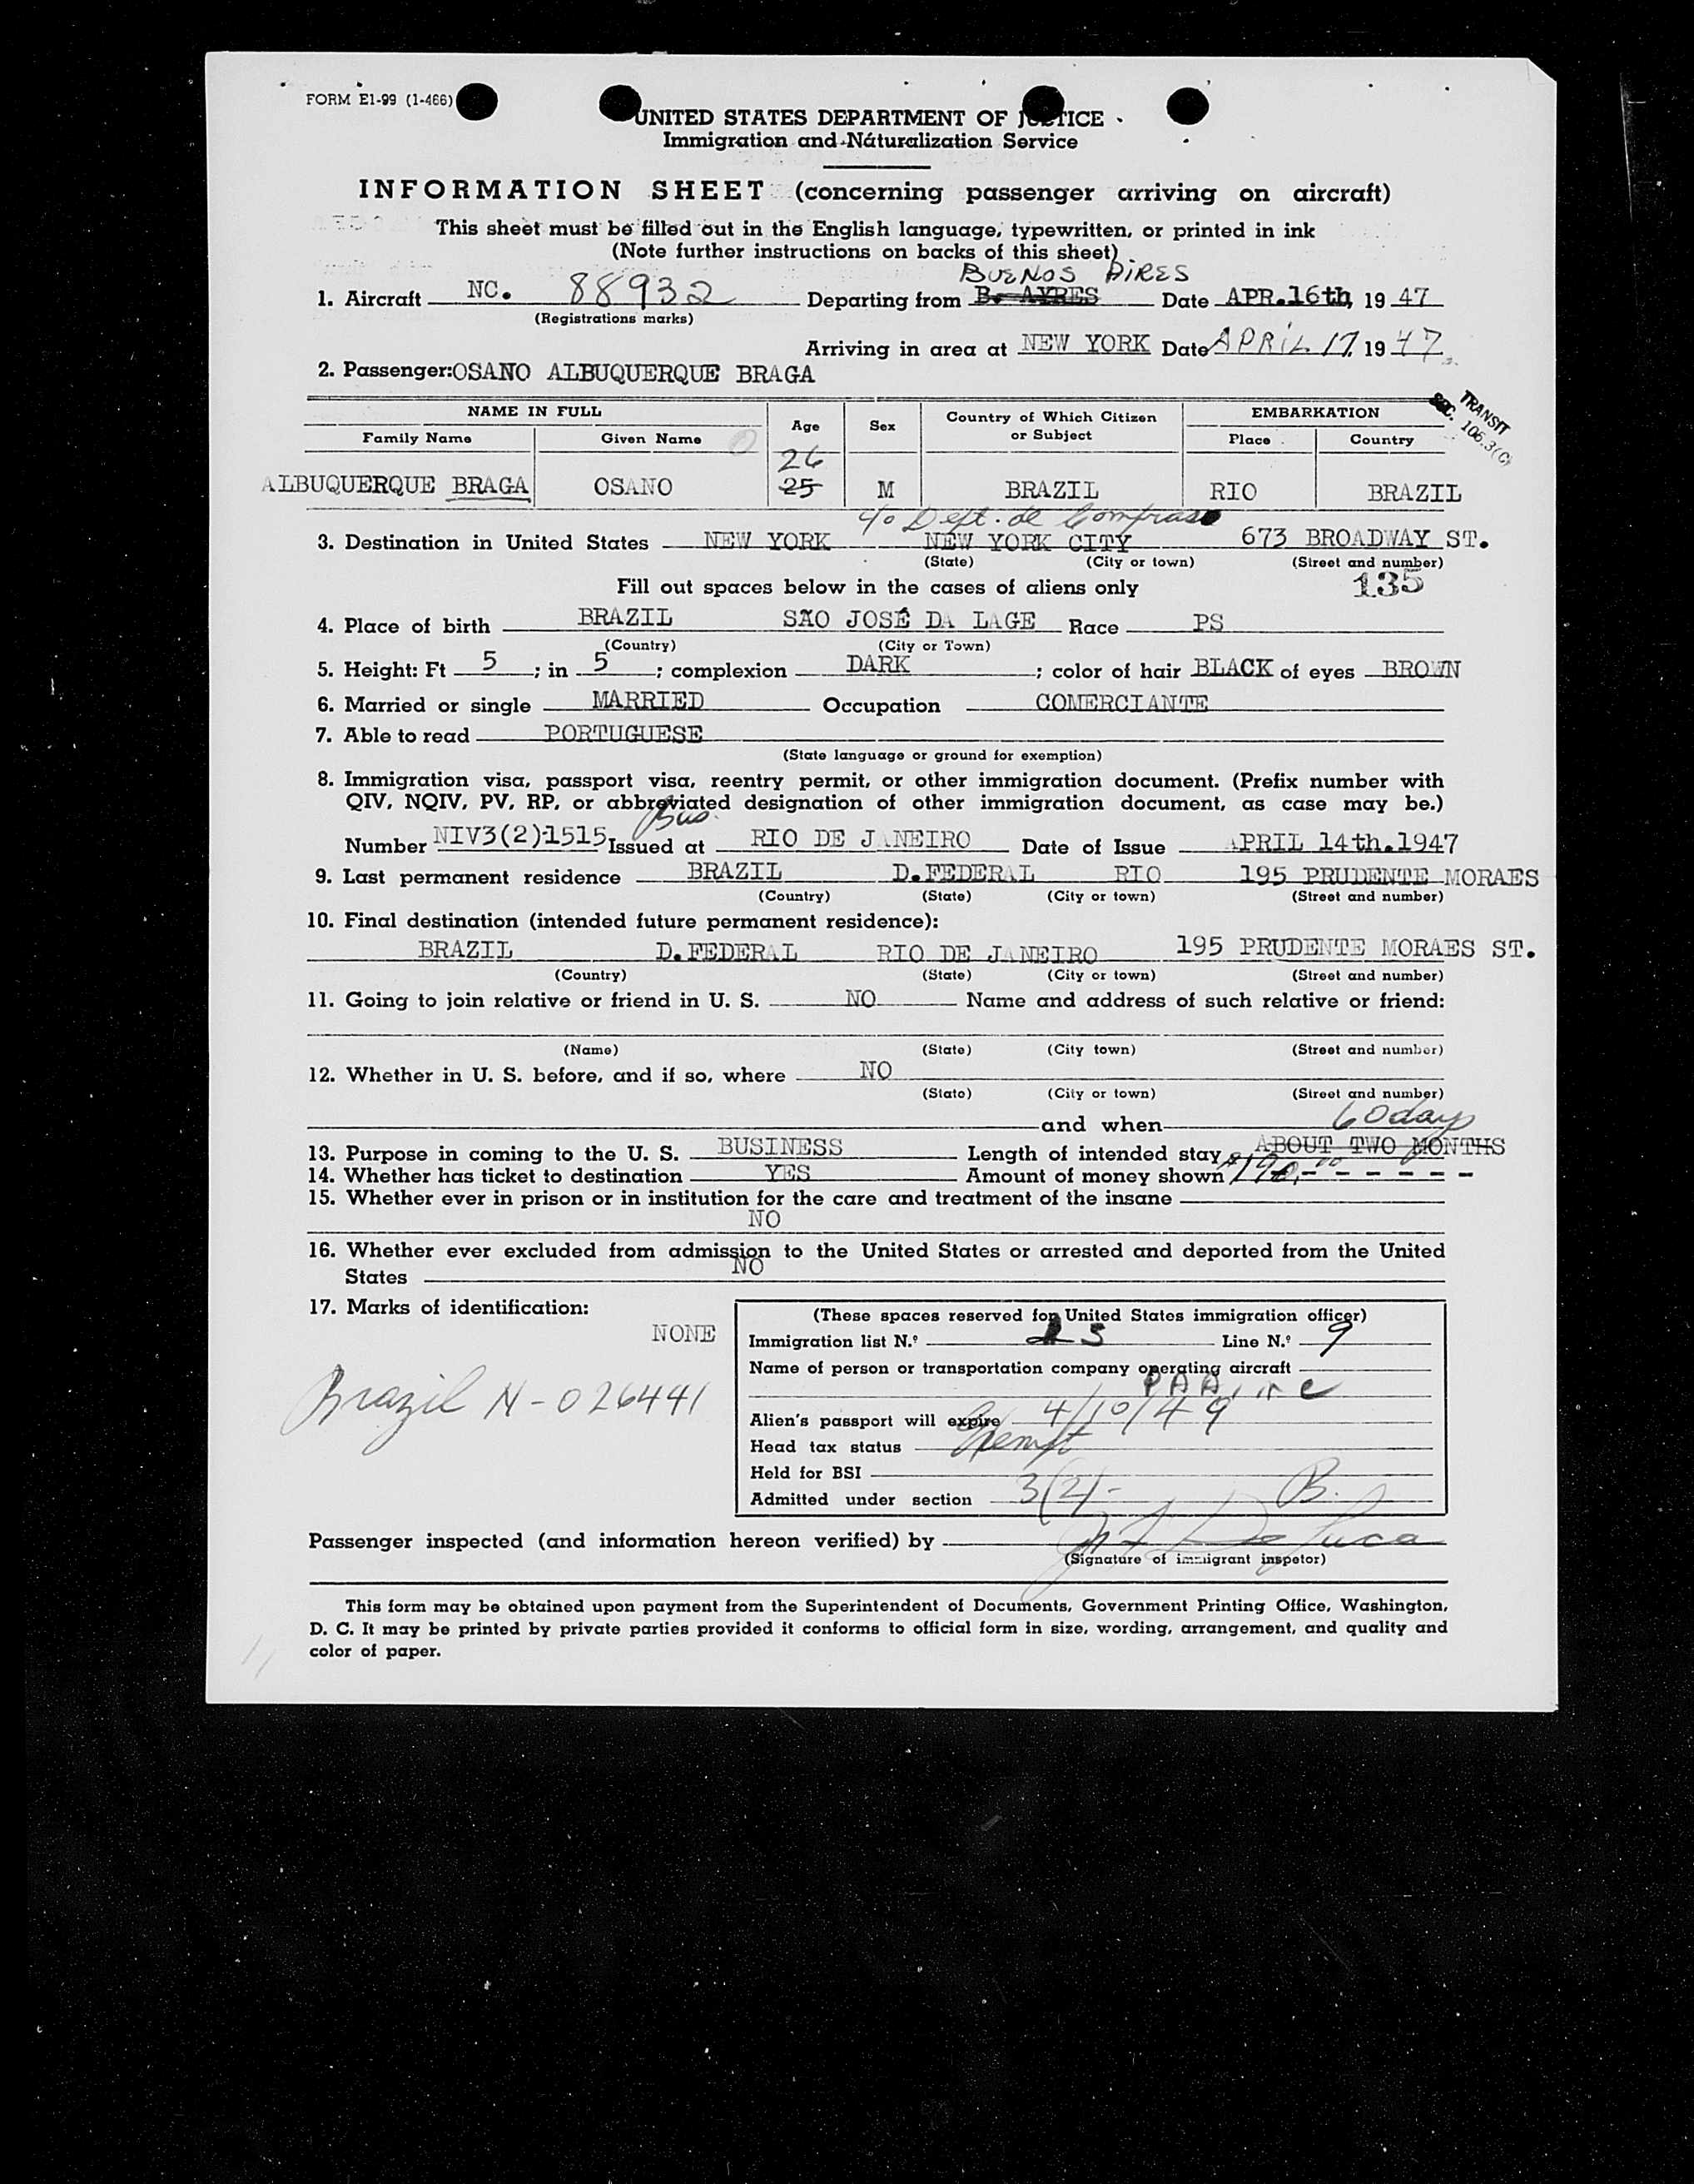 FORM E1-99 (1-466)
UNITED STATES DEPARTMENT OF JUSTICE
Immigration and Naturalization Service
INFORMATION SHEET (concerning passenger arriving on aircraft)
This sheet must be filled out in the English language, typewritten, or printed in ink
(Note further instructions on backs of this sheet)
BUENOS AIRES
1. Aircraft NC. 88932 Departing from B. AYRES Date APR.16th, 19 47
(Registrations marks)
Arriving in area at NEW YORK Date APRIL 17. 19 47
2. Passenger:OSANO ALBUQUERQUE BRAGA
TRANSIT
SEC. 106.3(C)
NAME IN FULL Age Sex Country of Which Citizen or Subject EMBARKATION
Family Name Given Name Place Country
26
ALBUQUERQUE BRAGA OSANO 25 M BRAZIL RIO BRAZIL
c/o Dept. de Compras
3. Destination in United States NEW YORK NEW YORK CITY 673 BROADWAY ST.
(State) (City or town) (Street and number)
Fill out spaces below in the cases of aliens only 135
4. Place of birth BRAZIL SÃO JOSÉ DA LAGE Race PS
(Country) (City or Town)
5. Height: Ft 5 ; in 5 ; complexion DARK ; color of hair BLACK of eyes BROWN
6. Married or single MARRIED Occupation COMERCIANTE
7. Able to read PORTUGUESE
(State language or ground for exemption)
8. Immigration visa, passport visa, reentry permit, or other immigration document. (Prefix number with
QIV, NQIV, PV, RP, or abbreviated designation of other immigration document, as case may be.)
Bus.
Number NIV3(2)-1515 Issued at RIO DE JANEIRO Date of Issue APRIL 14th.1947
9. Last permanent residence BRAZIL D.FEDERAL RIO 195 PRUDENTE MORAES
(Country) (State) (City or town) (Street and number)
10. Final destination (intended future permanent residence):
BRAZIL D.FEDERAL RIO DE JANEIRO 195 PRUDENTE MORAES ST.
(Country) (State) (City or town) (Street and number)
11. Going to join relative or friend in U. S. NO Name and address of such relative or friend:
(Name) (State) (City town) (Street and number)
12. Whether in U. S. before, and if so, where NO
(State) (City or town) (Street and number)
and when
60 days
13. Purpose in coming to the U. S. BUSINESS Length of intended stay ABOUT TWO MONTHS
14. Whether has ticket to destination YES Amount of money shown $190.00 - - - - - -
15. Whether ever in prison or in institution for the care and treatment of the insane
NO
16. Whether ever excluded from admission to the United States or arrested and deported from the United
States NO
17. Marks of identification:
NONE
Brazil N-026441
(These spaces reserved for United States immigration officer)
Immigration list N.º 5 Line N.º 9
Name of person or transportation company operating aircraft
PAA, inc
Alien's passport will expire 4/10/49
Head tax status Exempt
Held for BSI
Admitted under section 3(2)- B.
Passenger inspected (and information hereon verified) by De Luca
(Signature of immigrant inspetor)
This form may be obtained upon payment from the Superintendent of Documents, Government Printing Office, Washington,
D. C. It may be printed by private parties provided it conforms to official form in size, wording, arrangement, and quality and
color of paper.